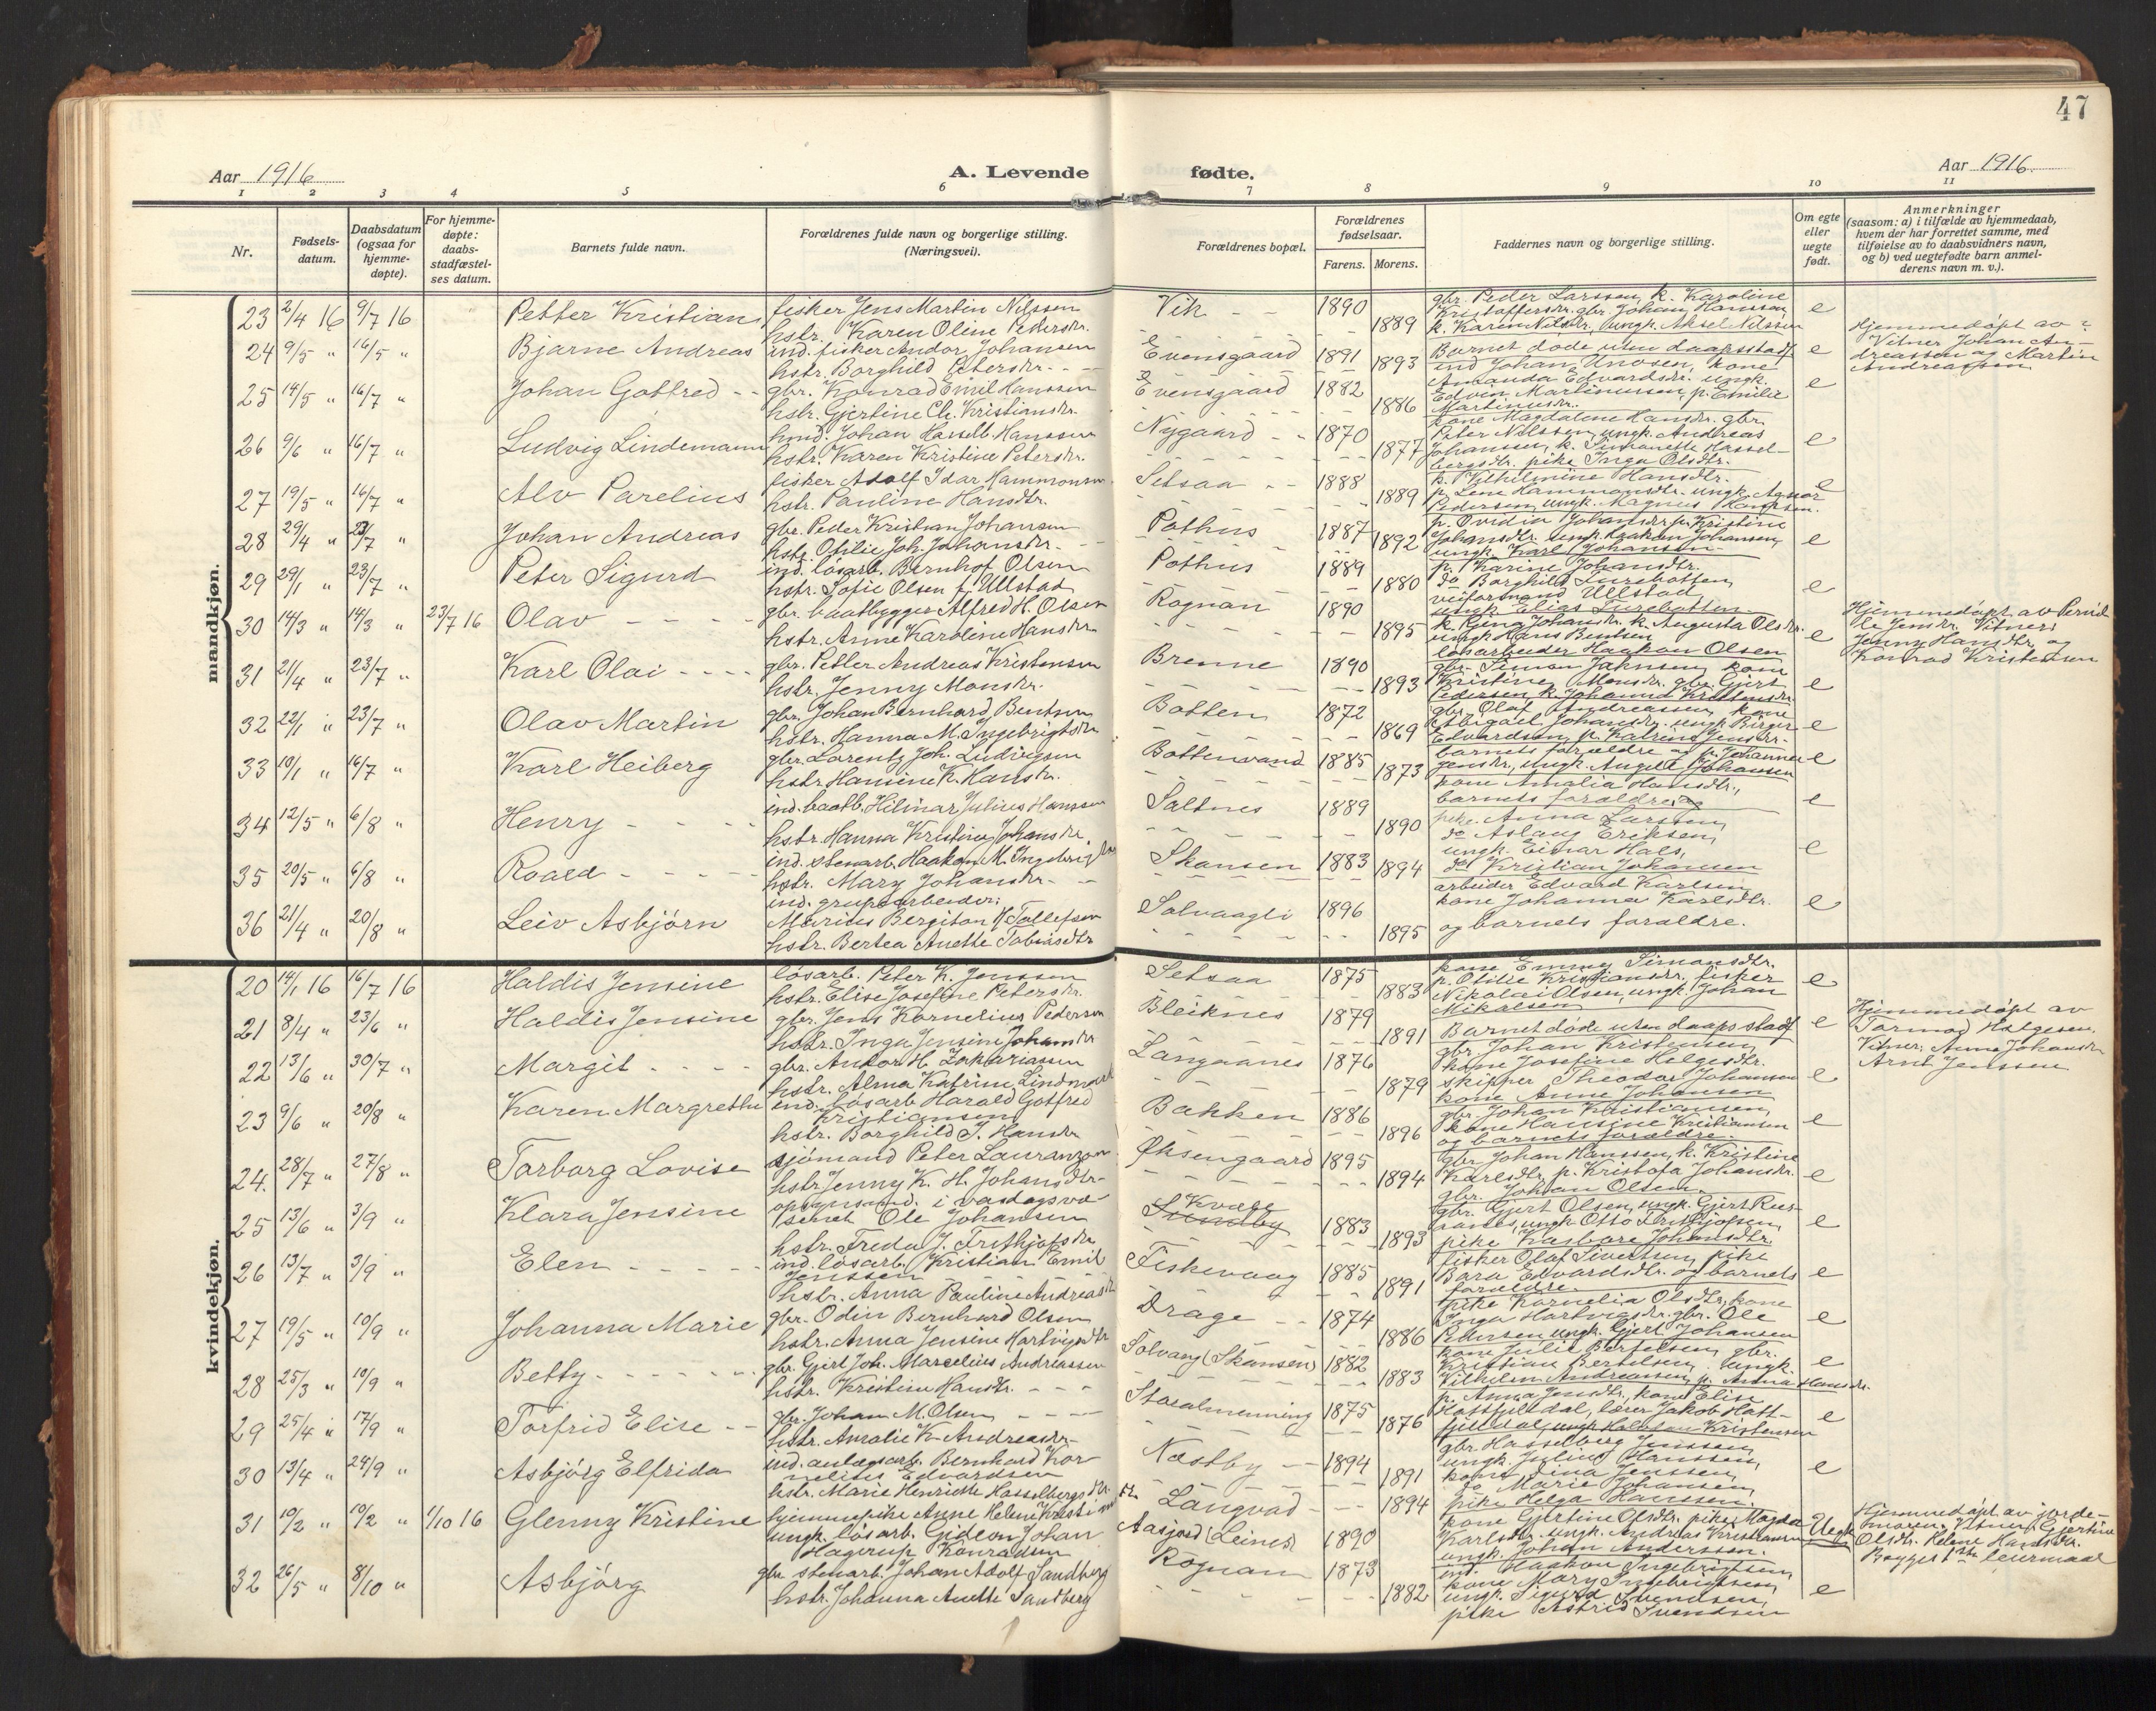 47
Aar 1916
A. Levende fødte.
Aar 1916.
1 2 3 4 5 6 7 8 9 10 11
Nr.
Fødsels-
datum.
Daabsdatum
(ogsaa for
hjemme-
døpte).
For hjemme-
døpte:
daabs-
stadfæstel-
ses datum.
Barnets fulde navn.
Forældrenes fulde navn og borgerlige stilling.
(Næringsvei).
Forældrenes bopæl.
Forældrenes
fødselsaar.
Farens. Morens.
Faddernes navn og borgerlige stilling.
Om egte
eller
uegte
født.
Anmerkninger
(saasom: a) i tilfælde av hjemmedaab,
hvem der har forrettet samme, med
tilføielse av to daabsvidners navn,
og b) ved uegtefødte barn anmel-
derens navn m. v.).
mandkjøn.
23 2/4 16 9/7 16 Petter Kristian fisker Jens Martin Nilssen
hstr. Karen Oline Pedersdtr.
Vik 1890 1889
gbr. Peder Larssen, k. Karoline
Kristoffersdtr. gbr. Johan Hanssen,
k. Karen Nilsdtr, ungk. Aksel Nilssen
e
24 9/5 " 16/5 " Bjarne Andreas ind. fisker Andor Johansen
hstr. Borghild Petersdtr.
Evensgaard 1891 1893
Barnet døde uten daapsstadf
e
Hjemmedøpt av
Vitner Johan An-
dreassen og Martin
Andreassen
25 14/5 " 16/7 " Johan Gotfred gbr. Konrad Emil Hanssen
hstr. Gjertine Ch. Kristiansdtr.
Evensgaard 1882 1886
ind Johan Unosen, kone
Amanda Edvardsdtr. ungk.
Edvin Martinussen, p. Emilie
Martinusdtr.
e
26 9/6 " 16/7 " Ludvig Lindemann hmd. Johan Hasselb. Hanssen
hstr. Karen Kristine Petersdtr.
Nygaard 1870 1877
kone Magdalene Hansdtr. gbr.
Peter Nilssen, ungk. Andreas
Johanssen, k. Simonette Hassel-
bergsdtr. pike Inga Olsdtr.
e
27 19/5 " 16/7 " Alv Parelius fisker Adolf Idar Hammonsen
hstr. Pauline Hansdtr.
Setsaa 1888 1889
k. Vilhelmine Hansdtr.
p. Lene Hammonsdtr. ungk. Agnar
Pedersen, ungk. Magnus Hanssen.
e
28 29/4 " 23/7 " Johan Andreas gbr. Peder Kristian Johansen
hstr. Otilie Joh. Johansdtr.
Pothus 1887 1892
p. Ovidia Johansdtr. p. Kristine
Johansdtr. ungk. Haakon Johansen,
ungk. Karl Johansen
e
29 29/1 " 23/7 " Peter Sigurd ind. løsarb. Bernhof Olsen
hstr. Sofie Olsen f. Ullstad
Pothus 1889 1880
p. Karine Johansdtr.
do Borghild Lurebotten,
veiformand Ullstad
ungk. Elias Lurebotten
e
30 14/3 " 14/3 " 23/7 16 Olav gbr. baatbygger Alfred H. Olsen
hstr. Anne Karoline Hansdtr.
Rognan 1890 1895
k. Regina Johansdtr. k. Augusta Olsdtr.
ungk Hans Bentsen
løsarbeider Haakon Olsen
e
Hjemmedøpt av Pernil
le Jensdtr. Vitner:
Jenny Hansdtr. og
Konrad Kristensen
31 21/4 " 23/7 " Karl Olai gbr. Petter Andreas Kristensen
hstr. Jenny Monsdtr.
Brenne 1890 1893
gbr. Simon Jakobsen, kone
Kristine Monsdtr. gbr. Gjert
Pedersen, k. Johanna Kristensdtr.
e
32 22/1 " 23/7 " Olav Martin gbr. Johan Bernhard Bentsen
hstr. Hanna M. Ingebrigtsdtr
Botten 1872 1869
gbr. Olaf Andreassen, kone
Abigael Johansdtr. ungk. Birger
Edvardsen, p. Katrine Jensdtr.
e
33 10/1 " 16/7 " Karl Heiberg gbr. Lorentz Joh. Ludvigsen
hstr Hansine K. Hansdtr.
Bottenvand 1885 1873
barnets forældre og p. Johanne
Jensdtr., ungk. Angell Johansen
kone Amalia Hansdtr.,
e
34 12/5 " 6/8 " Henry ind. baatb. Hilmar Julius Hanssen
hstr. Hanna Kristine Johansdtr.
Saltnes 1889 1890
barnets forældre og
pike Anna Larssen,
do Aslaug Eriksen,
ungk. Einar Hals,
do Kristian Johansen
e
35 20/5 " 6/8 " Roald ind. stenarb. Haakon M. Ingebrigtsen
hstr. Mary Johansdtr.
Skansen 1883 1894
e
36 21/4 " 20/8 " Leiv Asbjørn ind. grubearbeider:
Marius Bergiton K. Tollefsen
hstr. Bertea Anette Tobiasdtr
Solvaagli 1896 1895
arbeider Edvard Karlsen
kone Johanna Karlsdtr.
og barnets forældre.
e
kvindekjøn.
20 14/1 16 16/7 16 Haldis Jensine løsarb. Peter K. Jenssen
hstr. Elise Josefine Petersdtr.
Setsaa 1875 1883
kone Emmy Simonsdtr.
p. Otilie Kristiansdtr. fisker
Nikolai Olsen, ungk. Johan
Mikalsen
e
21 8/4 " 23/6 " Haldis Jensine gbr. Jens Kornelius Pedersen
hstr. Inga Jensine Johansdtr
Bleiknes 1879 1891
Barnet døde uten daapsstadf
e
Hjemmedøpt av
Tormod Helgesen.
Vitner: Anne Johansdtr
Arnt Jenssen
22 13/6 " 30/7 " Margit gbr. Andor H. Zakariassen
hstr. Alma Katrine Lindmark
Langaanes 1876 1879
gbr. Johan Kristensen,
kone Josefine Helgesdtr.
skipper Theodor Johansen
kone Anne Johansen
e
23 9/6 " 20/8 " Karen Margrethe ind. løsarb Harald Gotfred
Kristiansen
hstr. Borghild J. Hansdtr
Bakken 1886 1896
gbr. Johan Kristiansen,
kone Hansine Kristiansen
og barnets forældre.
e
24. 28/7 " 27/8 " Torborg Lovise sjømand Peter Lauranzon
hstr. Jenny K. H. Johansdtr.
Øksengaard 1895 1894
gbr. Johan Hanssen, k. Kristine
Karlsdtr, p. Kristofa Johansdtr.
gbr. Johan Olsen.
e
25 13/6 " 3/9 " Klara Jensine opsynsmd. i vasdagsvæ-
senet Ole Johansen
hstr. Freda J. Frithjofsdtr
Kvæle
Sundby 1883 1893
gbr. Gjert Olsen, ungk. Gjert Rus-
aanes, ungk. Otto Frithjofsen,
pike Kasbare Johansdtr.
e
26 13/7 " 3/9 " Elen ind. løsarb. Kristian Emil
Jenssen
hstr. Anna Pauline Andreasdtr
Fiskevaag 1885 1891
fisker Olaf Sivertsen, pike
Bara Edvardsdtr. og barnets
forældre
e
27 19/5 " 10/9 " Johanna Marie gbr. Odin Bernhard Olsen
hstr. Anna Jensine Hartvigsdtr
Drage 1874 1886
pike Kornelia Olsdtr, kone
Inga Hartvigsdtr. gbr. Ole
Pedersen ungk. Gjert Johansen
e
28 25/3 " 10/9 " Betty gbr. Gjert Joh. Marselius Andreassen
hstr. Kristine Hansdtr.
Solvang (Skansen) 1882 1883
kone Julie Bertelsen, gbr.
Kristian Bertelsen, ungk.
Vilhelm Andreassen, p. Anna Hansdtr.
e
29 25/4 " 17/9 " Torfrid Elise gbr. Johan M. Olsen
hstr. Amalie K. Andreasdtr.
Storalmenning 1875 1876
p. Anna Jensdtr., kone Elise
Hattfjelldal, lærer Jakob Hatt-
fjelldal, ungk Halvdan Kristensen
e
30 13/4 " 24/9 " Asbjørg Elfrida ind. anlægsarb. Bernhard Kor
nelius Edvardsen
hstr. Marie Henriette Hasselbergsdtr.
Næstby 1894 1891
gbr Hasselberg Jenssen,
ungk. Julius Hanssen,
kone Lina Jenssen,
do Marie Johansen,
pike Helga Hanssen.
e
31 10/2 " 10/2 " 1/10 16 Glenny Kristine hjemmepike Anne Helene Kristiansdtr.
ungk. løsarb. Gideon Johan
Hagerup Konradsen
Langvad 1894
Aasjord (Leines) 1890
kone Gjertine Olsdtr. pike Magda
Karlsdtr. ungk. Andreas Kristiansen
ungk. Johan Anderssen.
Uegte
Hjemmedøpt av jorde-
moren. Vitner: Gjertine
Olsdtr. Helene Hansdtr.
Begges 1ste leiermaal
32 26/5 " 8/10 " Asbjørg gbr. stenarb. Johan Adolf Sandberg
hstr. Johanna Anette Sandberg
Rognan 1873 1882
ind. Haakon Ingebrigtsen,
kone Mary Ingebrigtsen,
ungk. Sigurd Svendsen,
pike Astrid Svendsen
e